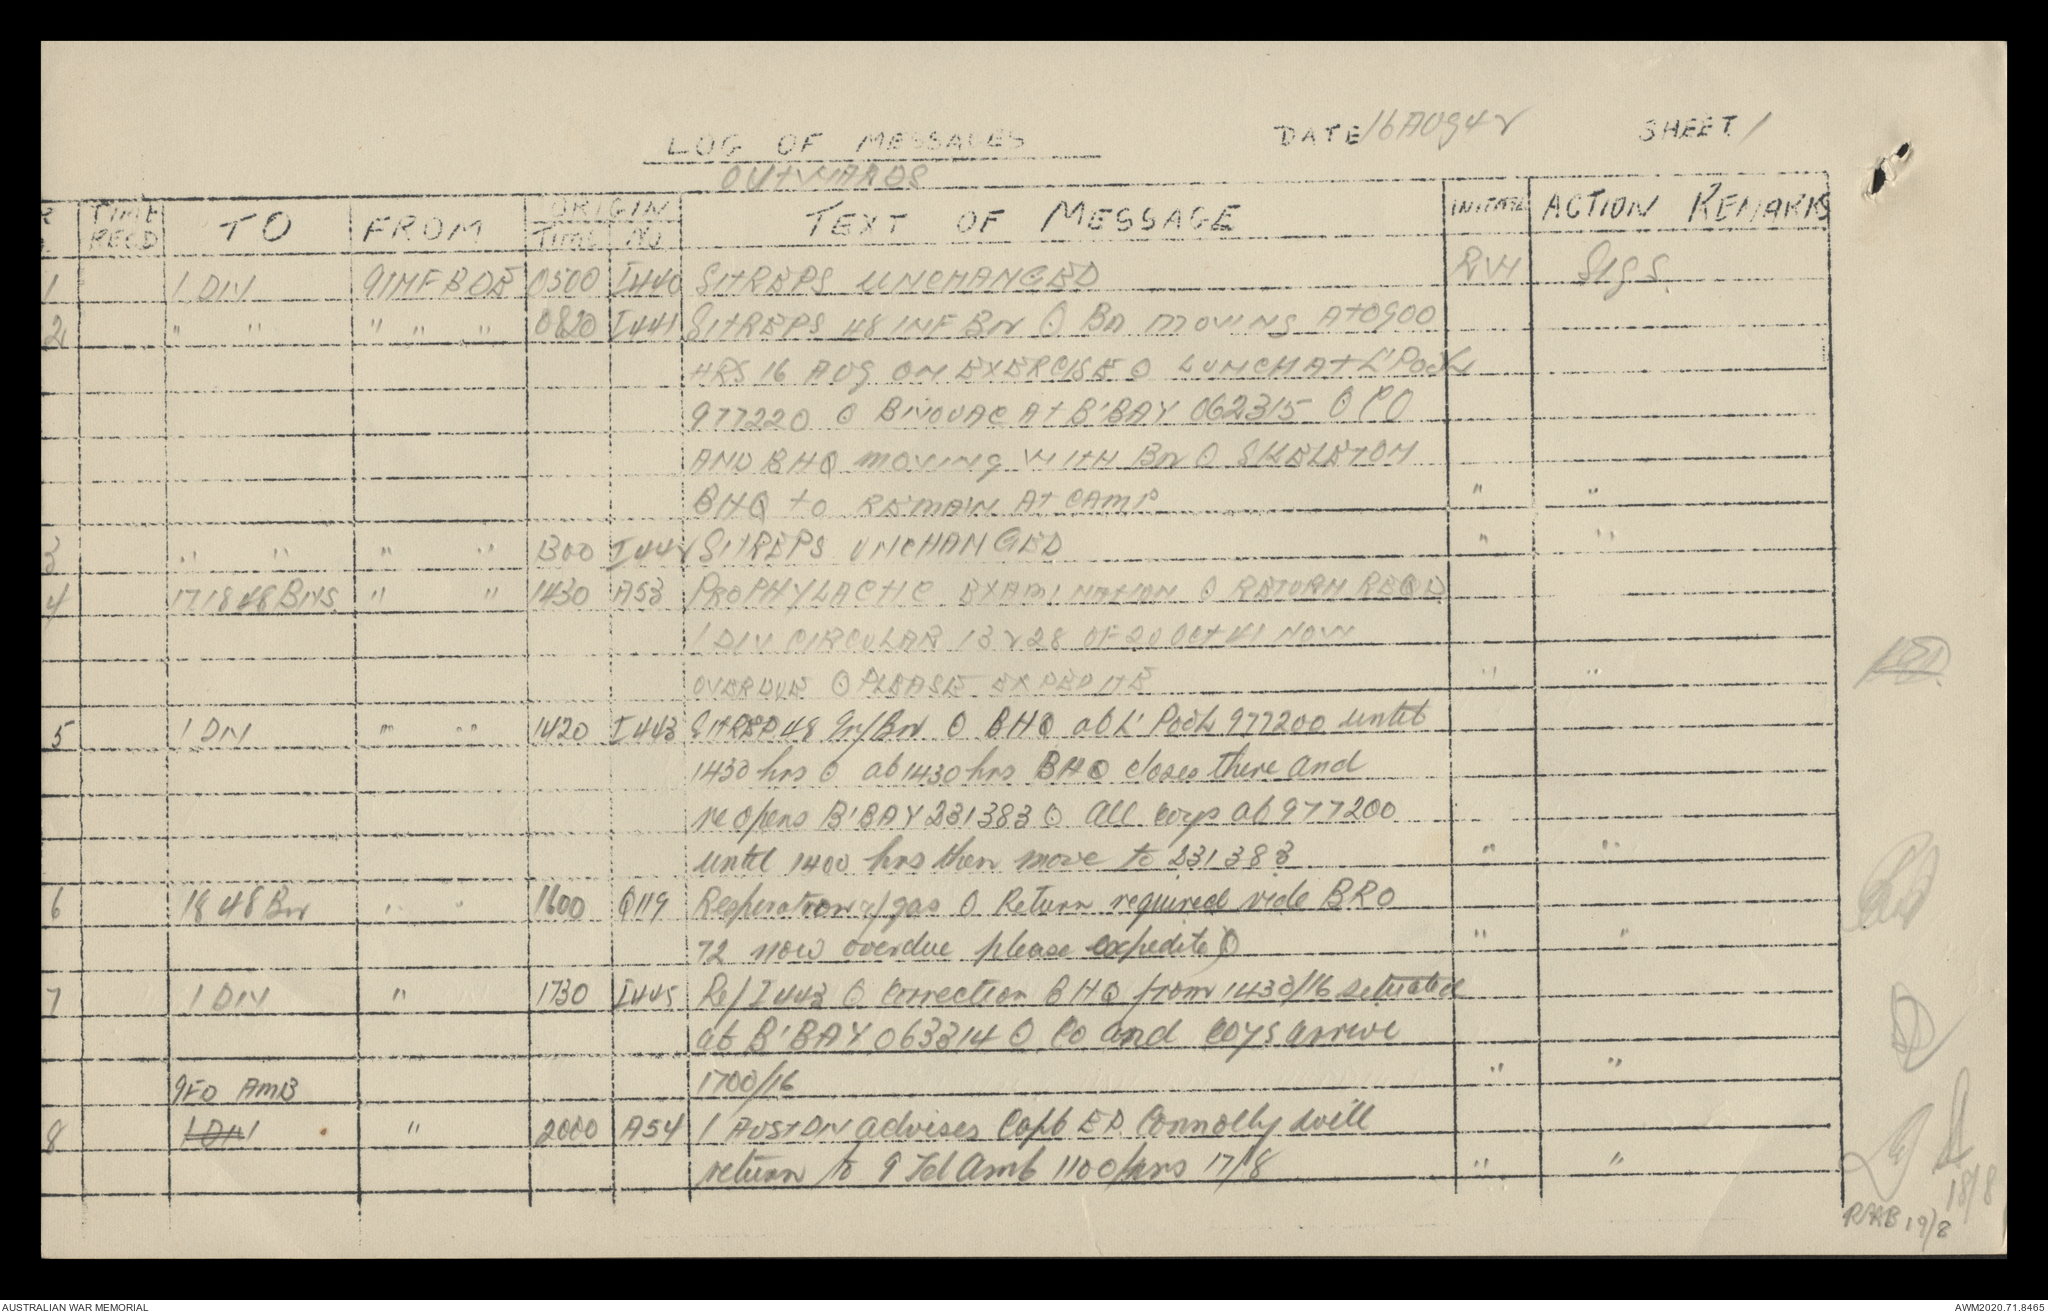 LOG OF MESSAGES DATE 16 AUG 42 SHEET 1
OUTWARDS
TIME RECD TO FROM ORIGIN TIME NO TEXT OF MESSAGE INITIAL ACTION REMARKS
1 1 DIV 9 INF BDE 0500 I440 SITREPS UNCHANGED RVH Sigs
2 " " " " " 0820 I441 SITREPS 48 INF Bn O Bn MOVING AT 0900
HRS 16 AUG ON EXERCISE O LUNCH AT L'POOL
977220 O BIVOUAC AT B'BAY 062315 O CO
AND BHQ MOVING WITH Bn O SKELETON
BHQ TO REMAIN AT CAMP " "
3 " " " " 1300 I442 SITREPS UNCHANGED " "
4 17 18 48 BNS " " 1430 A53 PROPHYLACTIC EXAMINATION O RETURN REQD
1 DIV CIRCULAR 13228 OF 20 OCT 41 NOW
OVERDUE O PLEASE EXPEDITE " "
5 1 DIV " " 1420 I443 SITREP 48 Inf Bn O BHQ at L'Pool 977200 until
1430 hrs O at 1430 hrs BHQ closes there and
reopens B'BAY 231383 O All coys at 977200
until 1400 hrs then move to 231383 " "
6 18 48 Bn " " 1600 Q119 Respiration a/gas O Return required vide BRO
72 now overdue please expedite O " "
7 1 DIV " 1730 I445 Re/I443 O Correction BHQ from 1430/16 situated
at B'BAY 063314 O Co and coys arrive
1700/16 " "
9 FD AMB
8 1 DIV " 2000 A54 1 AUST DIV advises Capt E D Connolly will
return to 9 Fd Amb 1100 hrs 17/8 " "
18/8
19/8
AUSTRALIAN WAR MEMORIAL AWM2020.71.8465